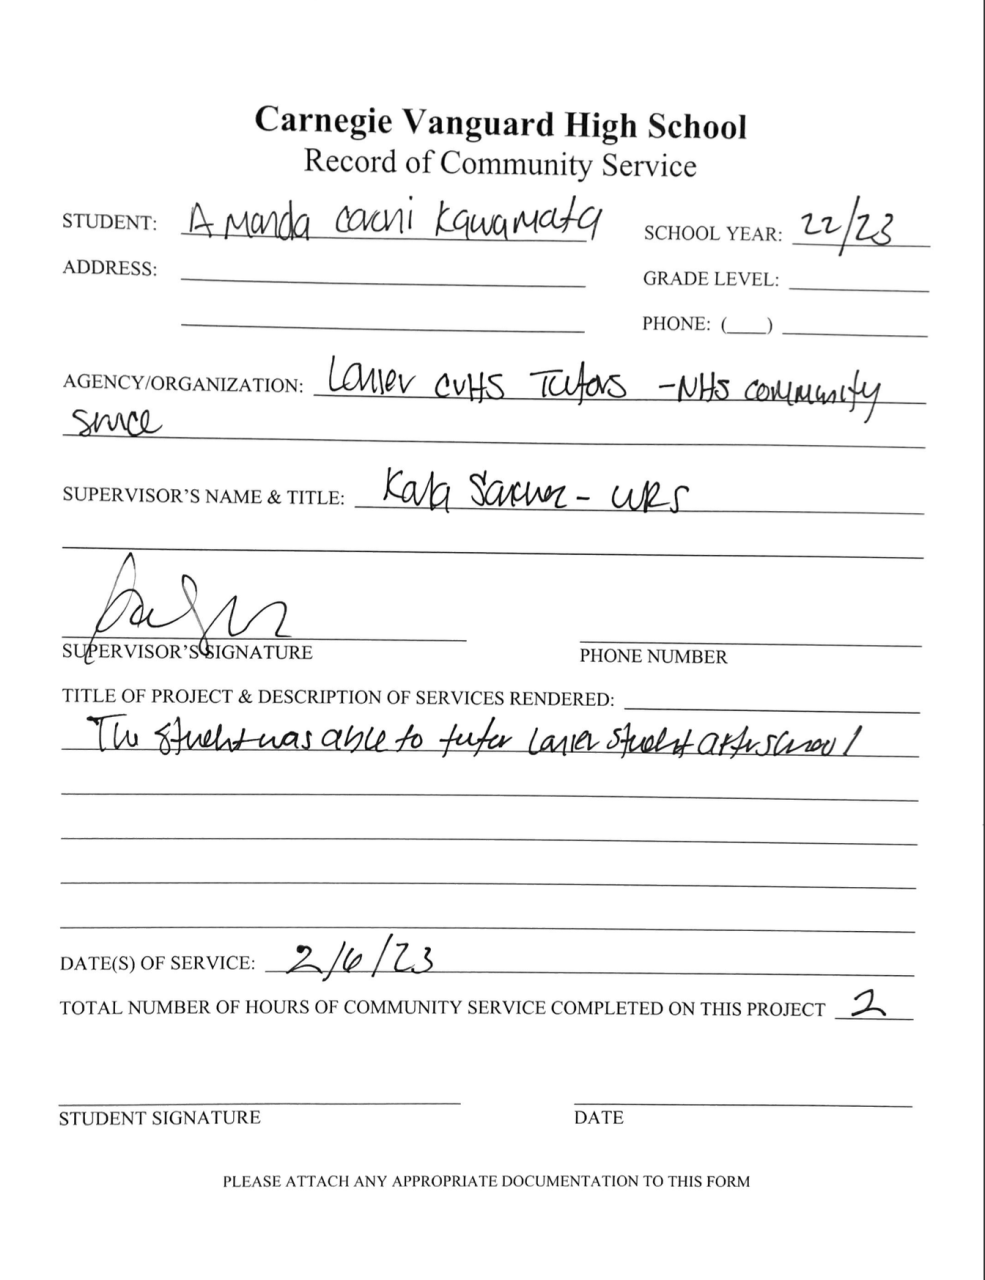 Carnegie Vanguard High School
Record of Community Service
STUDENT: Amanda Kawamata SCHOOL YEAR: 22/23
ADDRESS: GRADE LEVEL:
PHONE: (___)
AGENCY/ORGANIZATION: Lanier CVHS Tutors - NHS community
SUPERVISOR'S NAME & TITLE: - WRS
SUPERVISOR'S SIGNATURE PHONE NUMBER
TITLE OF PROJECT & DESCRIPTION OF SERVICES RENDERED:
The student was able to tutor Lanier student after school
DATE(S) OF SERVICE: 2/6/23
TOTAL NUMBER OF HOURS OF COMMUNITY SERVICE COMPLETED ON THIS PROJECT 2
STUDENT SIGNATURE DATE
PLEASE ATTACH ANY APPROPRIATE DOCUMENTATION TO THIS FORM